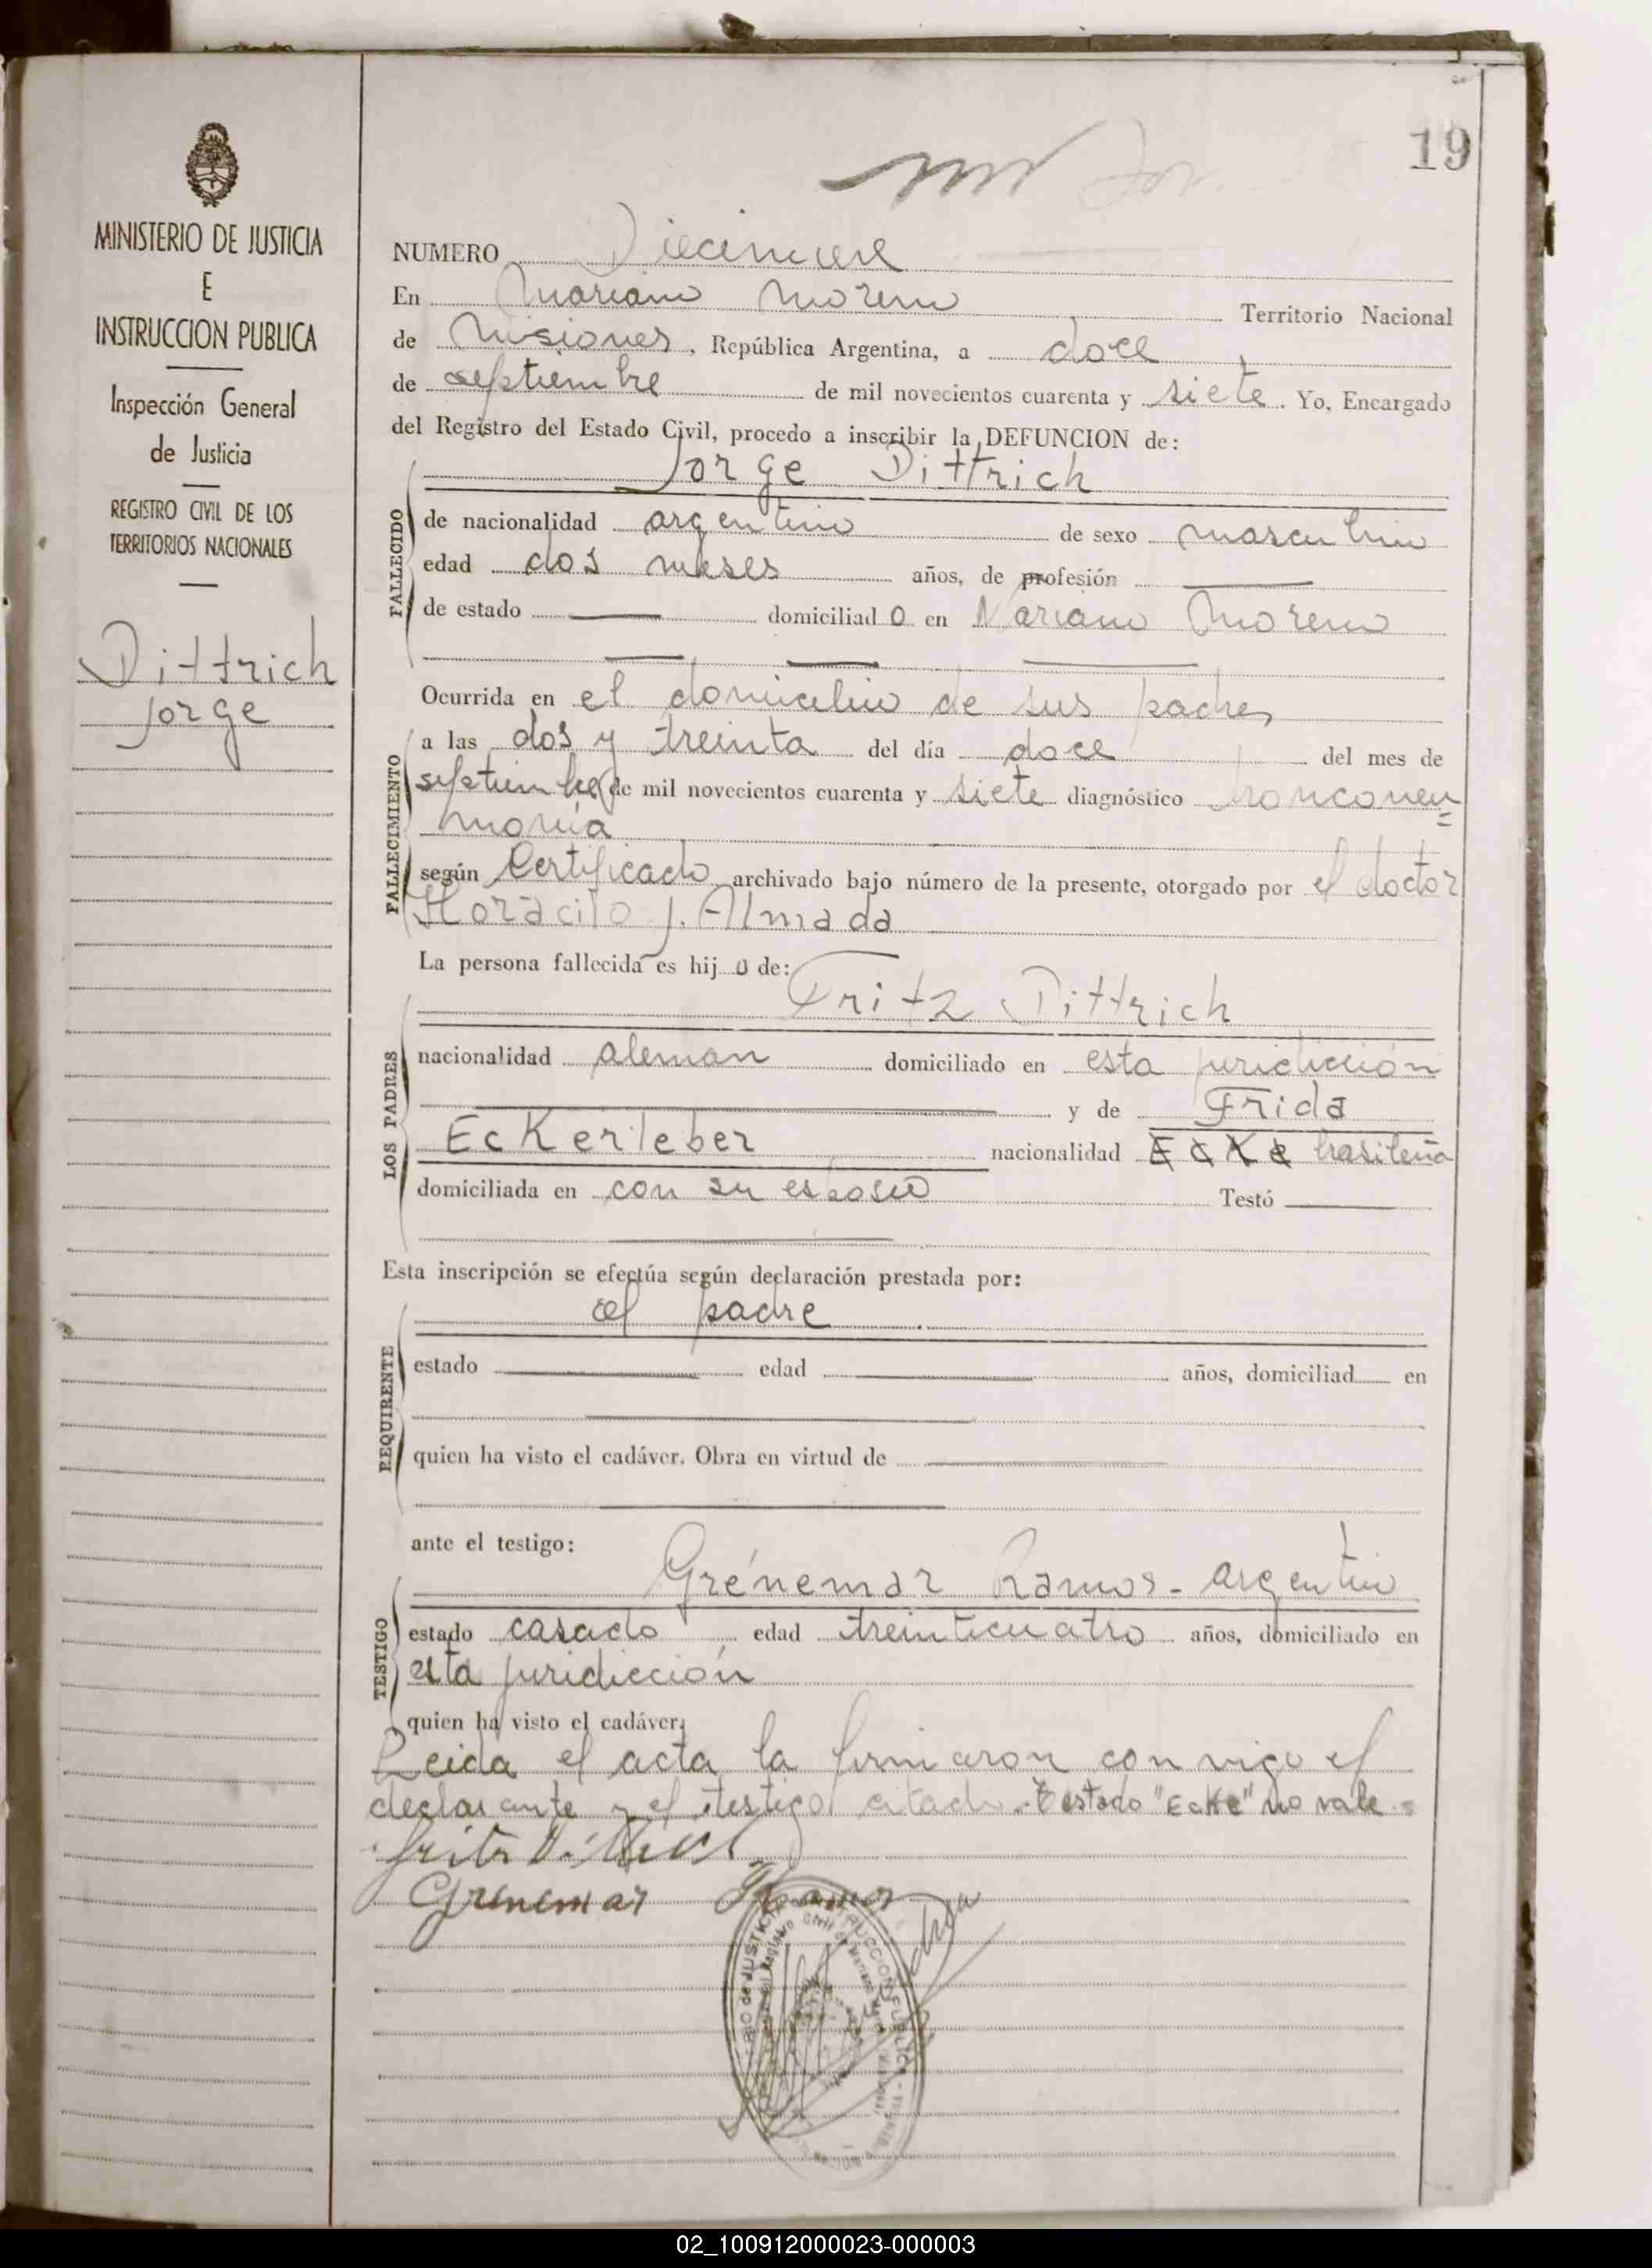 19
MINISTERIO DE JUSTICIA
E
INSTRUCCION PUBLICA
Inspección General
de Justicia
REGISTRO CIVIL DE LOS
TERRITORIOS NACIONALES
Dittrich
Jorge
NUMERO Diecinueve
En Mariano Moreno Territorio Nacional
de Misiones, República Argentina, a doce
de septiembre de mil novecientos cuarenta y siete. Yo, Encargado
del Registro del Estado Civil, procedo a inscribir la DEFUNCION de:
Jorge Dittrich
FALLECIDO
de nacionalidad argentino de sexo masculino
edad dos meses años, de profesión
de estado domiciliado en Mariano Moreno
Ocurrida en el domicilio de sus padres
FALLECIMIENTO
a las dos y treinta del día doce del mes de
septiembre de mil novecientos cuarenta y siete diagnóstico bronconeu=
monia
según Certificado archivado bajo número de la presente, otorgado por el doctor
Horacito J. Almada
La persona fallecida es hijo de:
Fritz Dittrich
LOS PADRES
nacionalidad aleman domiciliado en esta juridicción
y de Frida
Eckerleber nacionalidad Ecke brasileña
domiciliada en con su esposo Testó
Esta inscripción se efectúa según declaración prestada por:
el padre
REQUIRENTE
estado edad años, domiciliad en
quien ha visto el cadáver. Obra en virtud de
ante el testigo:
Grénemar Ramos - argentino
TESTIGO
estado casado edad treinticuatro años, domiciliado en
esta juridicción
quien ha visto el cadáver.
Leida el acta la firmaron conmigo el
declarante y el testigo citado. Testado "Ecke" no vale =
Fritz Dittrich
Grenemar Ramos
02_100912000023-000003